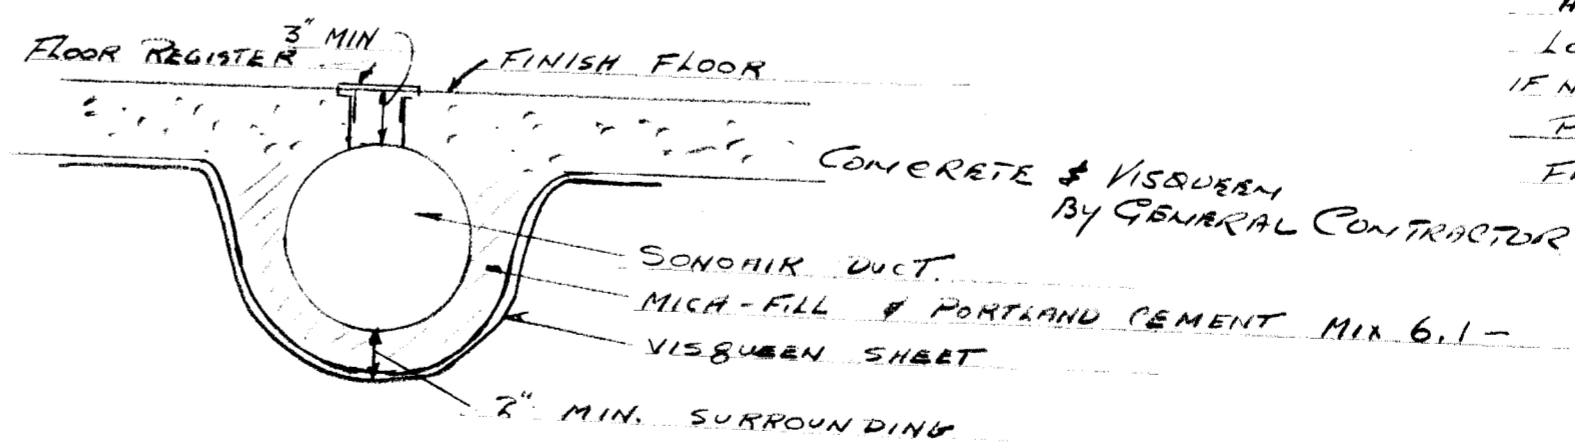 3" MIN
FLOOR REGISTER
FINISH FLOOR
CONCRETE & VISQUEEN
BY GENERAL CONTRACTOR
SONOAIR DUCT.
MICA-FILL & PORTLAND CEMENT MIX 6.1-
VISQUEEN SHEET
2" MIN. SURROUNDING
LO
IF N